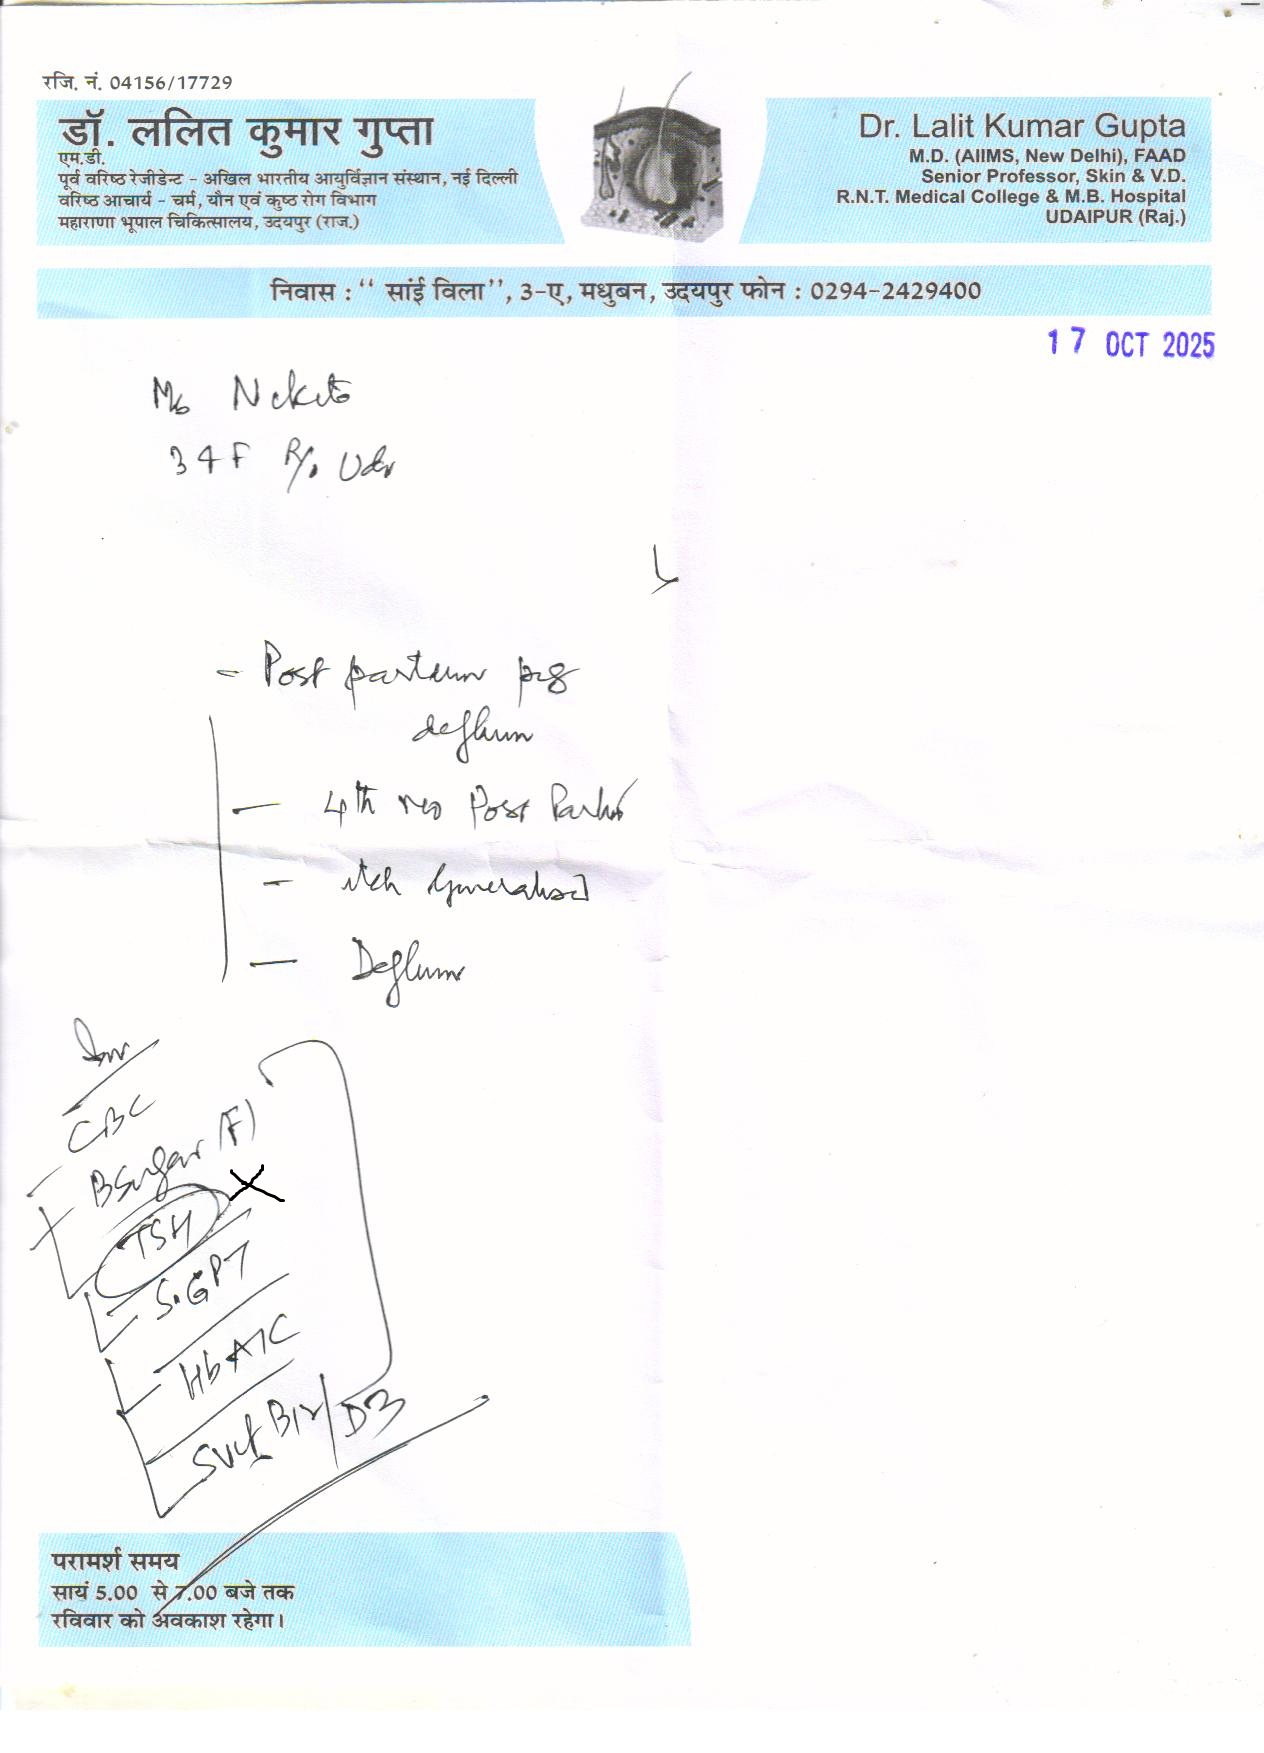 रजि. नं. 04156/17729
डॉ. ललित कुमार गुप्ता
एम.डी.
पूर्व वरिष्ठ रेजीडेन्ट - अखिल भारतीय आयुर्विज्ञान संस्थान, नई दिल्ली
वरिष्ठ आचार्य - चर्म, यौन एवं कुष्ठ रोग विभाग
महाराणा भूपाल चिकित्सालय, उदयपुर (राज.)
Dr. Lalit Kumar Gupta
M.D. (AIIMS, New Delhi), FAAD
Senior Professor, Skin & V.D.
R.N.T. Medical College & M.B. Hospital
UDAIPUR (Raj.)
निवास : ‘‘ सांई विला’’, 3-ए, मधुबन, उदयपुर फोन : 0294-2429400
17 OCT 2025
34 F R/o
- Post partum
- 4th Post
- itch Generalised
CBC
B Sugar (F)
TSH
S.GPT
HbA1C
B12/D3
परामर्श समय
सायं 5.00 से 7.00 बजे तक
रविवार को अवकाश रहेगा।